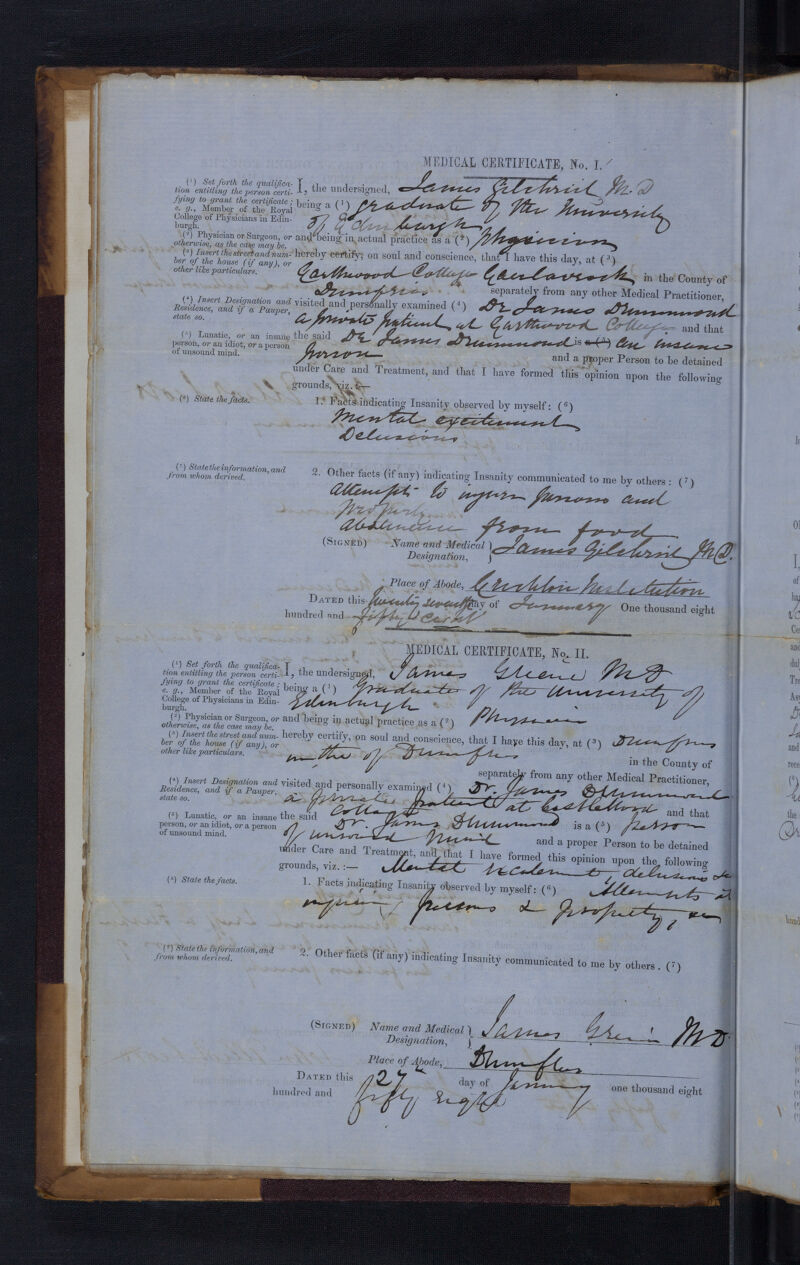 MEDICAL CERTIFICATE, No. I.
(¹) Set forth the qualifica-
tion entitling the person certi-
fying to grant the certificate;
e. g., Member of the Royal
College of Physicians in Edin-
burgh.
I, the undersigned, James Gilchrist M.D
being a (¹) graduate of the University
of Edinburgh
(²) Physician or Surgeon, or
otherwise, as the case may be.
and being in actual practice as a (²) Physician
(³) Insert the street and num-
ber of the house (if any), or
other like particulars.
hereby certify, on soul and conscience, that I have this day, at (³)
Gasthwood Cottage Caerlaverock in the County of
Dumfries separately from any other Medical Practitioner,
(⁴) Insert Designation and
Residence, and if a Pauper,
state so.
visited and personally examined (⁴) Dr James Drummond
a private patient at Gasthwood Cottage and that
(⁵) Lunatic, or an insane
person, or an idiot, or a person
of unsound mind.
the said Dr James Drummond is a (⁵) an insane
person and a proper Person to be detained
under Care and Treatment, and that I have formed this opinion upon the following
grounds, viz. :—
(⁶) State the facts.
1. Facts indicating Insanity observed by myself: (⁶)
Mental excitement
Delusions
(⁷) State the information, and
from whom derived.
2. Other facts (if any) indicating Insanity communicated to me by others : (⁷)
Attempts to injure persons and
property
abstinence from food
(SIGNED) Name and Medical Designation, } James Gilchrist M.D.
Place of Abode, Crichton Institution
DATED this twenty seventh day of January One thousand eight
hundred and fifty eight
MEDICAL CERTIFICATE, No. II.
(¹) Set forth the qualifica-
tion entitling the person certi-
fying to grant the certificate;
e. g., Member of the Royal
College of Physicians in Edin-
burgh.
I, the undersigned, James Greive MD
being a (¹) Graduate of the University of
Edinburgh
(²) Physician or Surgeon, or
otherwise, as the case may be.
and being in actual practice as a (²) Physician
(³) Insert the street and num-
ber of the house (if any), or
other like particulars.
hereby certify, on soul and conscience, that I have this day, at (³) Dumfries
in the of Dumfries in the County of
separately from any other Medical Practitioner,
(⁴) Insert Designation and
Residence, and if a Pauper,
state so.
visited and personally examined (⁴) Dr. James Drummond
a private patient at
Cottage and that
(⁵) Lunatic, or an insane
person, or an idiot, or a person
of unsound mind.
the said Dr James Drummond is a (⁵) person
of unsound mind and a proper Person to be detained
under Care and Treatment, and that I have formed this opinion upon the following
grounds, viz. :— Mental excitement, delusions &c
(⁶) State the facts.
1. Facts indicating Insanity observed by myself: (⁶) Attempts at
injuring persons & property,
(⁷) State the information, and
from whom derived.
2. Other facts (if any) indicating Insanity communicated to me by others. (⁷)
(SIGNED) Name and Medical Designation, } James Greive MD
Place of Abode, Dumfries
DATED this 27th day of January one thousand eight
hundred and fifty eight